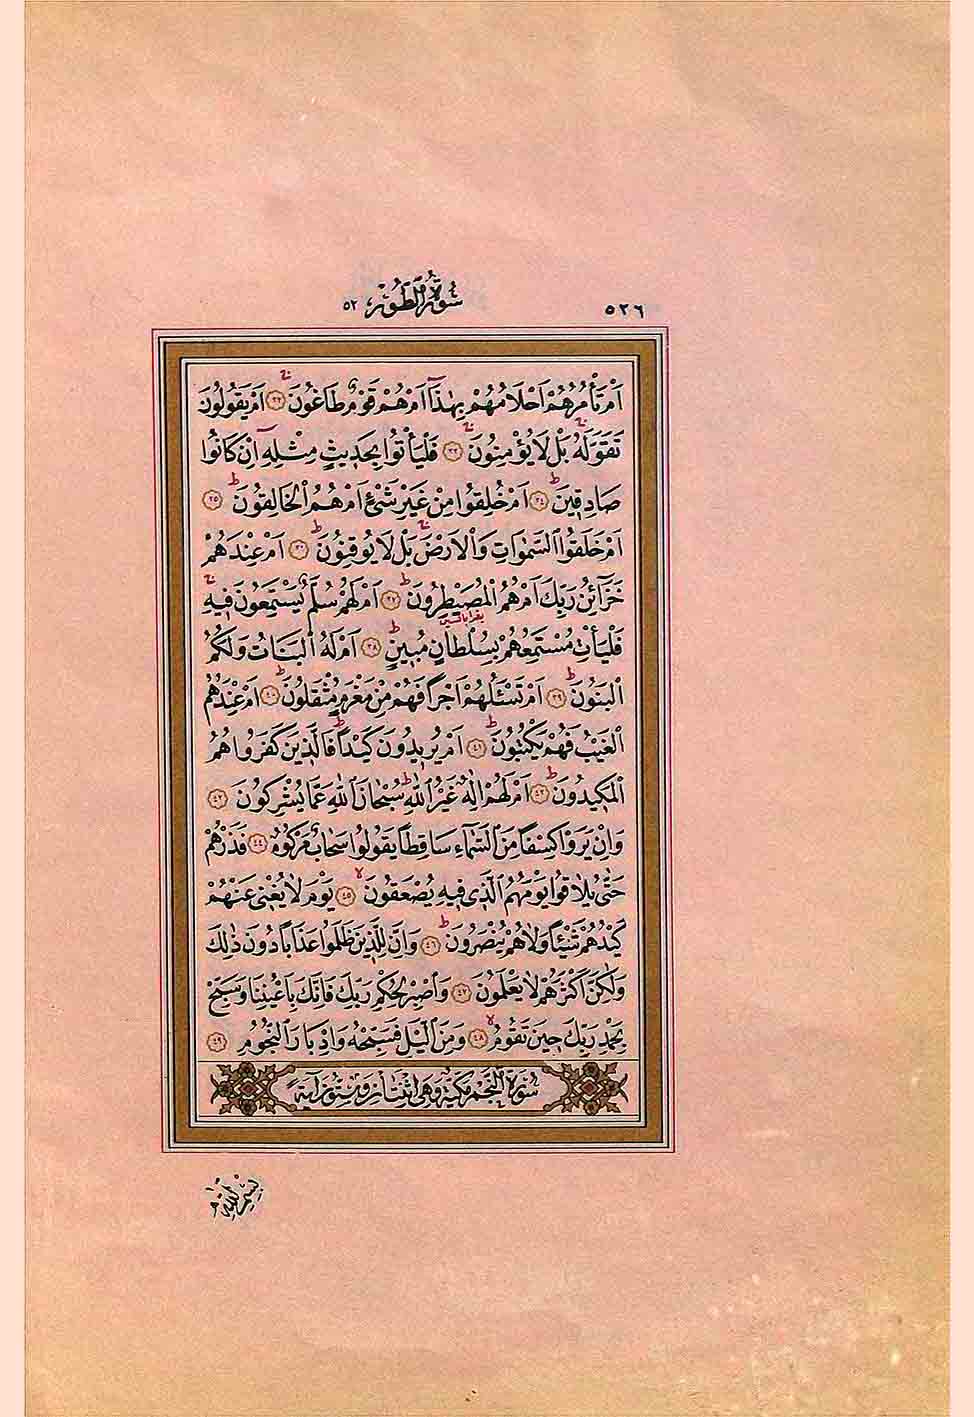 ٥٢٦
سُورَةُ الطُّورِ ٥٢
اَمْ تَأْمُرُهُمْ اَحْلَامُهُمْ بِهٰذَٓا اَمْ هُمْ قَوْمٌ طَاغُونَ ٣٢ اَمْ يَقُولُونَ
تَقَوَّلَهُ بَلْ لَا يُؤْمِنُونَ ٣٣ فَلْيَأْتُوا بِحَدِيثٍ مِثْلِهِٓ اِنْ كَانُوا
صَادِقِينَ ٣٤ اَمْ خُلِقُوا مِنْ غَيْرِ شَيْءٍ اَمْ هُمُ الْخَالِقُونَ ٣٥
اَمْ خَلَقُوا السَّمٰوَاتِ وَالْاَرْضَ بَلْ لَا يُوقِنُونَ ٣٦ اَمْ عِنْدَهُمْ
خَزَٓائِنُ رَبِّكَ اَمْ هُمُ الْمُصَيْطِرُونَ ٣٧ اَمْ لَهُمْ سُلَّمٌ يَسْتَمِعُونَ فِيهِ
فَلْيَأْتِ مُسْتَمِعُهُمْ بِسُلْطَانٍ مُبِينٍ ٣٨ اَمْ لَهُ الْبَنَاتُ وَلَكُمُ
الْبَنُونَ ٣٩ اَمْ تَسْـَٔلُهُمْ اَجْرًا فَهُمْ مِنْ مَغْرَمٍ مُثْقَلُونَ ٤٠ اَمْ عِنْدَهُمُ
الْغَيْبُ فَهُمْ يَكْتُبُونَ ٤١ اَمْ يُرِيدُونَ كَيْدًا فَالَّذِينَ كَفَرُوا هُمُ
الْمَكِيدُونَ ٤٢ اَمْ لَهُمْ اِلٰهٌ غَيْرُ اللّٰهِ سُبْحَانَ اللّٰهِ عَمَّا يُشْرِكُونَ ٤٣
وَاِنْ يَرَوْا كِسْفًا مِنَ السَّمَٓاءِ سَاقِطًا يَقُولُوا سَحَابٌ مَرْكُومٌ ٤٤ فَذَرْهُمْ
حَتّٰى يُلَاقُوا يَوْمَهُمُ الَّذِي فِيهِ يُصْعَقُونَ ٤٥ يَوْمَ لَا يُغْنِي عَنْهُمْ
كَيْدُهُمْ شَيْـًٔا وَلَا هُمْ يُنْصَرُونَ ٤٦ وَاِنَّ لِلَّذِينَ ظَلَمُوا عَذَابًا دُونَ ذٰلِكَ
وَلٰكِنَّ اَكْثَرَهُمْ لَا يَعْلَمُونَ ٤٧ وَاصْبِرْ لِحُكْمِ رَبِّكَ فَاِنَّكَ بِاَعْيُنِنَا وَسَبِّحْ
بِحَمْدِ رَبِّكَ حِينَ تَقُومُ ٤٨ وَمِنَ الَّيْلِ فَسَبِّحْهُ وَاِدْبَارَ النُّجُومِ ٤٩
سُورَةُ النَّجْمِ مَكِّيَّةٌ وَهِيَ اثْنَتَانِ وَسِتُّونَ اٰيَةً
بِسْمِ اللّٰهِ